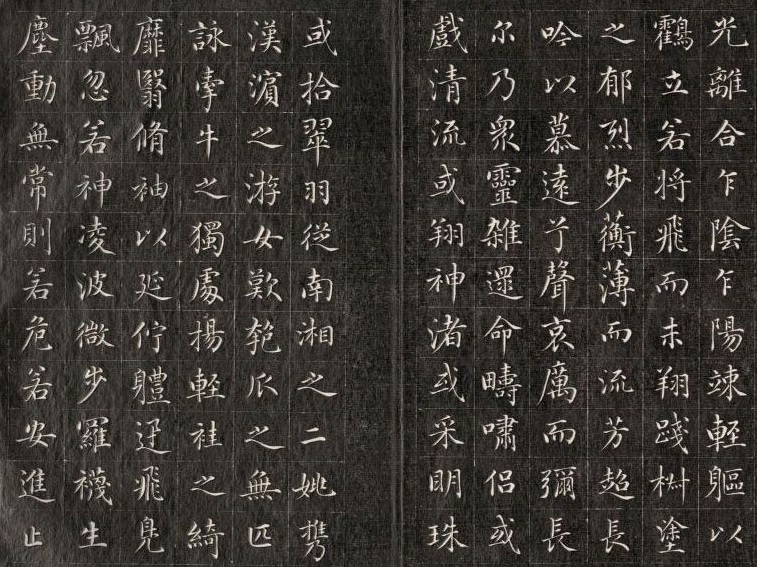 光離合乍陰乍陽竦輕軀以
鸖立若将飛而未翔踐椒塗
之郁烈步蘅薄而流芳超長
吟以慕遠兮聲哀厲而彌長
尔乃衆靈雜還命疇嘯侣或
戲清流或翔神渚或采明珠
或拾翠羽従南湘之二姚携
漢濵之游女歎匏瓜之無匹
詠牽牛之獨處揚軽袿之綺
靡翳脩袖以延佇軆迅飛鳧
飄忽若神凌波微步羅襪生
塵動無常則若危若安進止